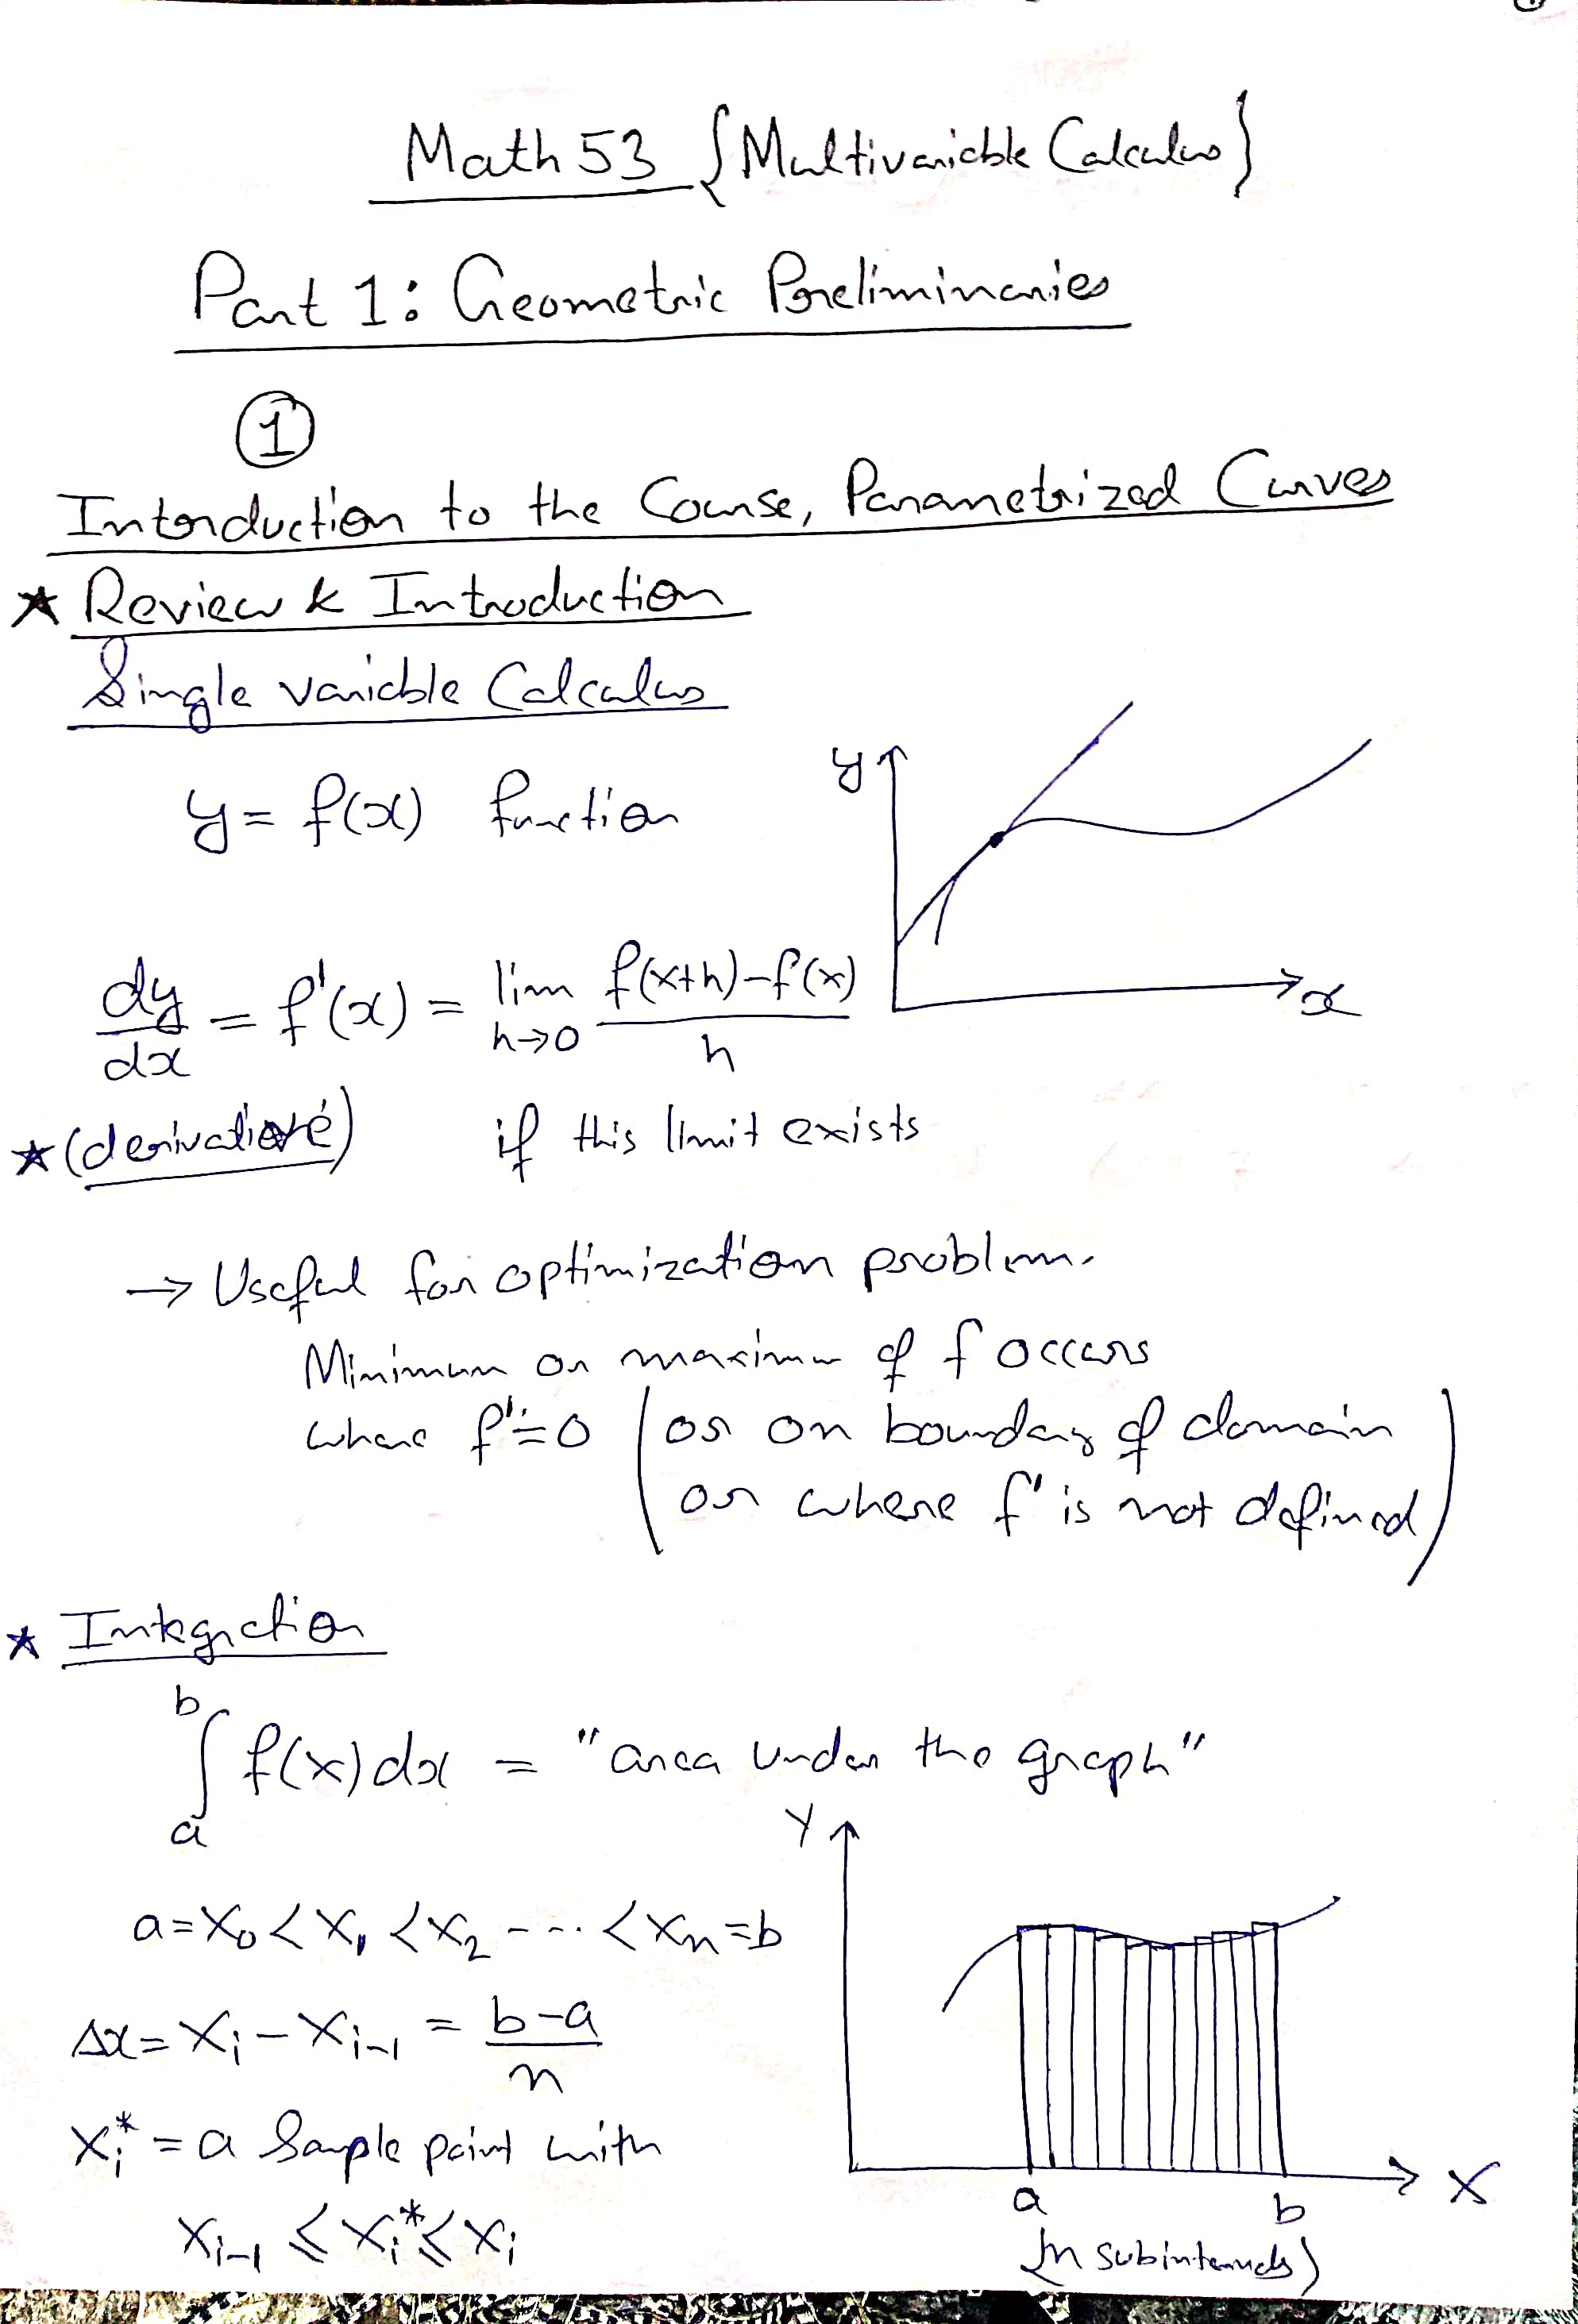 Math 53 {Multivariable Calculus}
Part 1: Geometric Preliminaries
①
Introduction to the Course, Parametrized Curves
* Review & Introduction
Single variable Calculus
y = f(x) function
y
x
dy/dx = f'(x) = lim h→0 (f(x+h)-f(x))/h
* (derivative) if this limit exists
→ Useful for optimization problem.
Minimum or maximum of f occurs
where f'=0 (or on boundary of domain
or where f' is not defined)
* Integration
∫_a^b f(x)dx = "area under the graph"
Y
a=x₀<x₁<x₂ ---- <xₙ=b
Δx = xᵢ - xᵢ₋₁ = (b-a)/n
xᵢ* = a Sample point with
X
a b
xᵢ₋₁ ≤ xᵢ* ≤ xᵢ
(n subintervals)